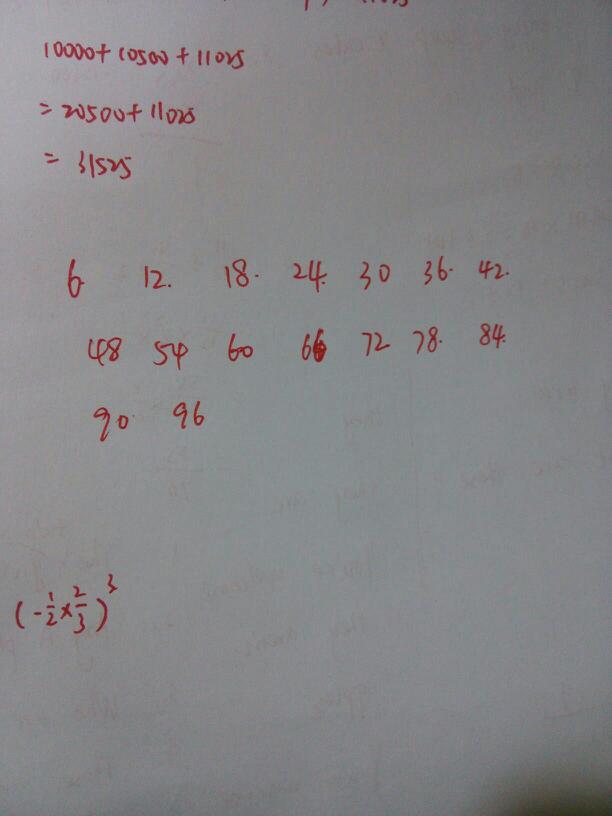 10000+10500+11025
=20500+11025
=31525
6 12. 18. 24. 30 36. 42.
48 54 60 66 72 78. 84.
90. 96
(-1/2×2/3)^3